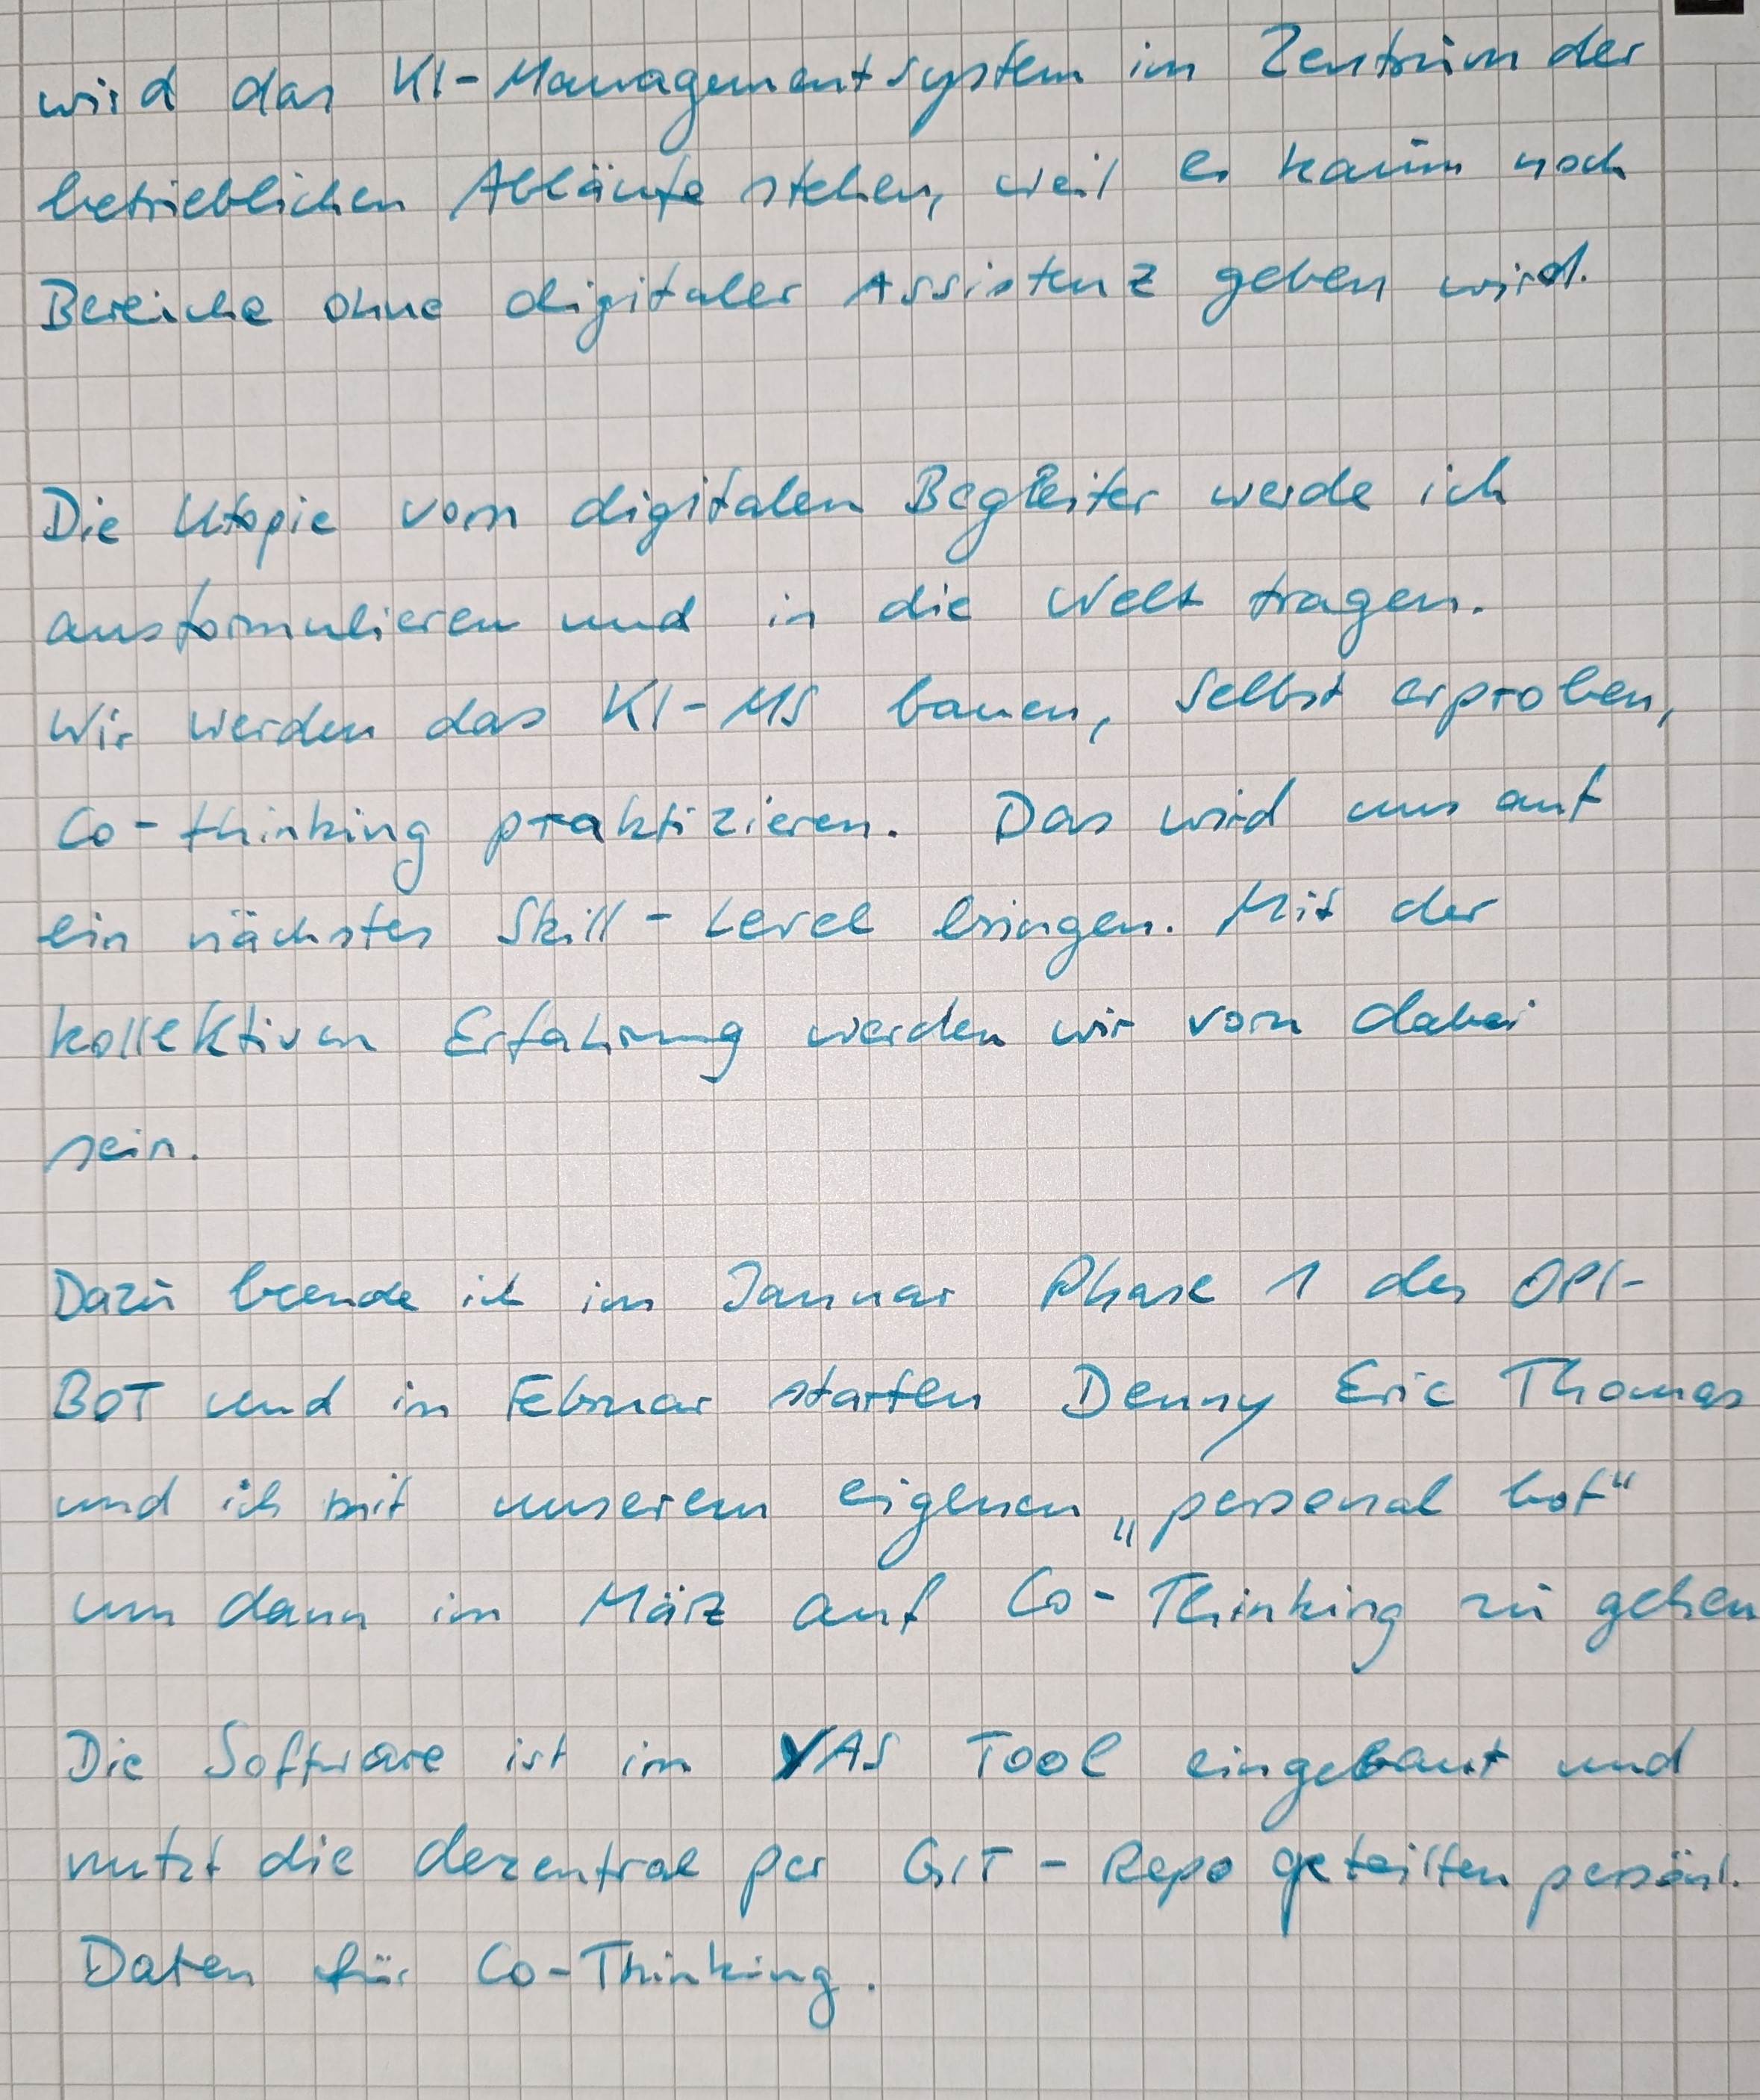 wird das KI-Managementsystem im Zentrum der
betrieblichen Abläufe stehen, weil es kaum noch
Bereiche ohne digitaler Assistenz geben wird.
Die Utopie vom digitalen Begleiter werde ich
ausformulieren und in die Welt tragen.
Wir werden das KI-MS bauen, selbst erproben,
Co-thinking praktizieren. Das wird uns auf
ein nächstes Skill-Level bringen. Mit der
kollektiven Erfahrung werden wir vorn dabei
sein.
Dazu beende ich im Januar Phase 1 des OPI-
BOT und im Februar starten Denny Eric Thomas
und ich mit unserem eigenen „personal bot"
um dann im März auf Co-Thinking zu gehen
Die Software ist im YAS Tool eingebaut und
nutzt die dezentral per GIT-Repo geteilten persönl.
Daten für Co-Thinking.